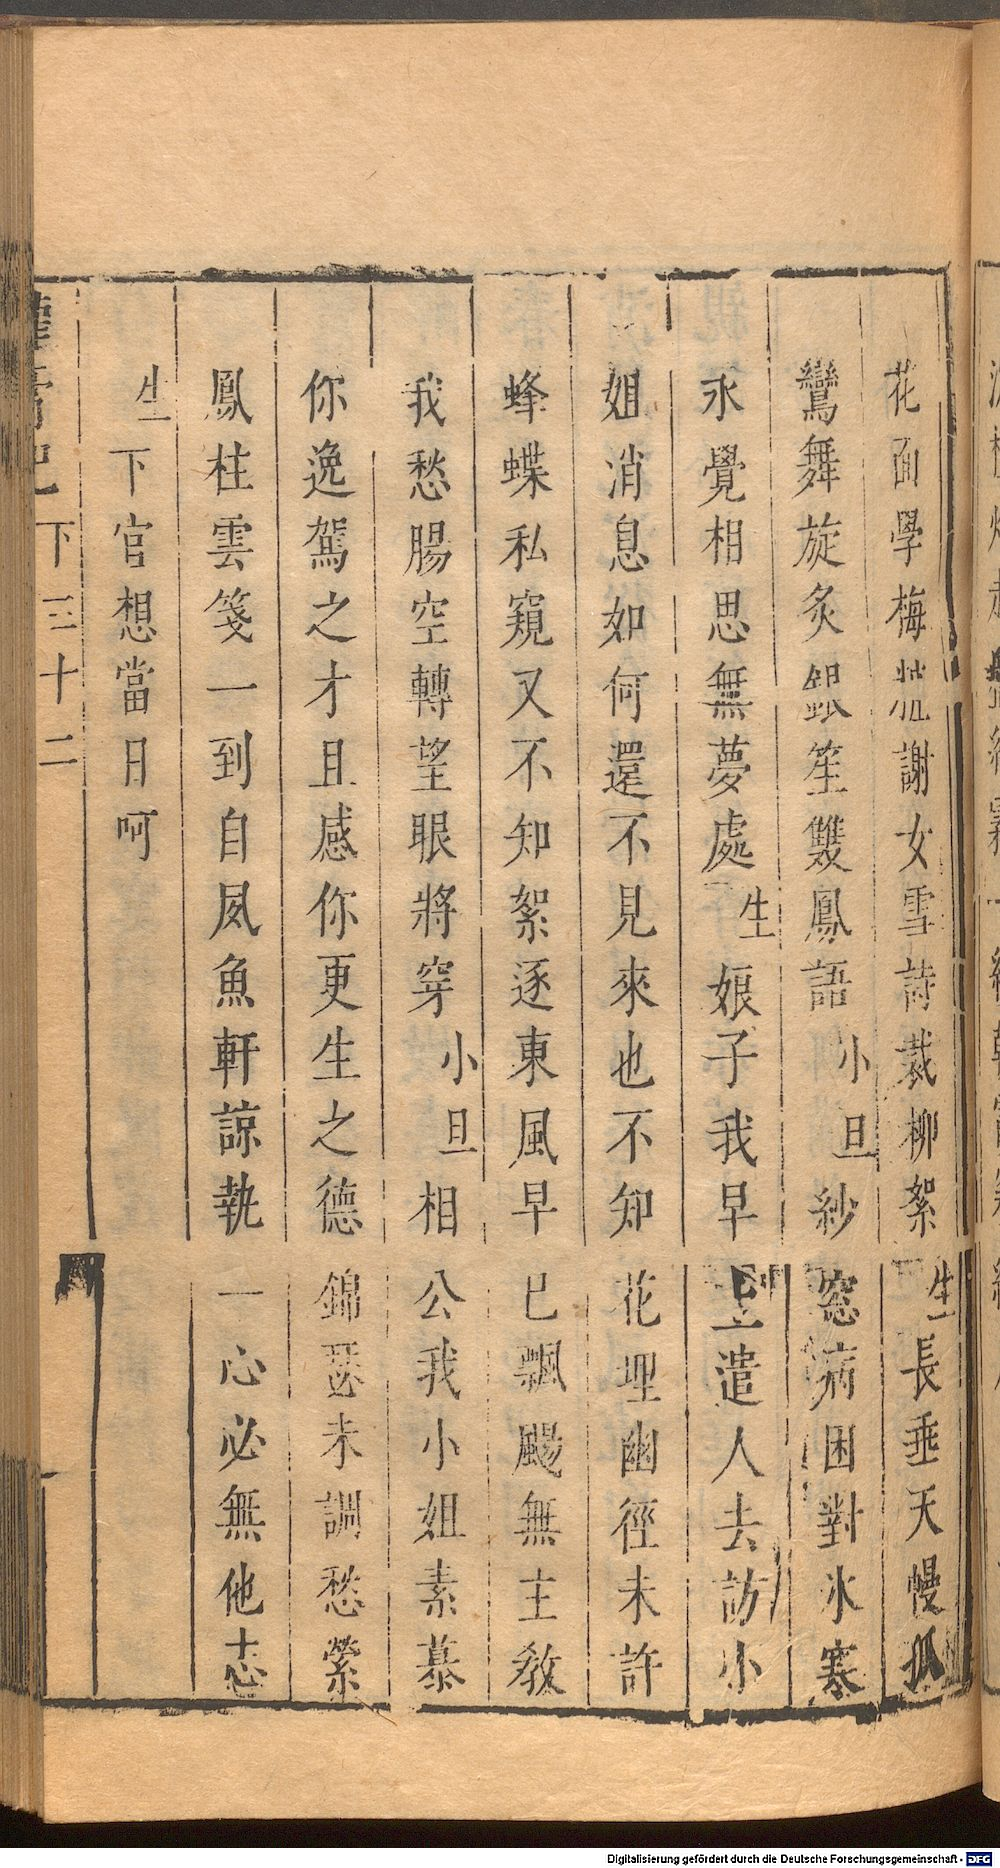 花面學梅粧謝女雪詩裁柳絮生長垂天幔孤
鸞舞旋炙銀笙雙鳳語小旦紗窓病困對氷寒
永覺相思無夢處生娘子我早上遣人去訪小
姐消息如何還不見來也不知花埋幽徑未許
蜂蝶私窺又不知絮逐東風早已飄颺無主教
我愁腸空轉望眼將穿小旦相公我小姐素慕
你逸駕之才且感你更生之德錦瑟未調愁縈
鳳柱雲箋一到自夙魚軒諒執一心必無他志
生下官想當日呵
下三十二
Digitalisierung gefördert durch die Deutsche Forschungsgemeinschaft - DFG